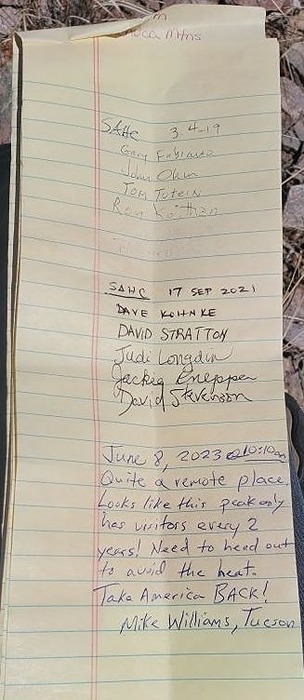 Mtns
SAHC 3-4-19
Gary Fabiano
John Ohm
Tom Totein
Ron
SAHC 17 SEP 2021
DAVE KOHNKE
DAVID STRATTON
Judi Longdin
Jackie
David Stevenson
June 8, 2023 @10:10am
Quite a remote place.
Looks like this peak only
has visitors every 2
years! Need to head out
to avoid the heat.
Take America BACK!
Mike Williams, Tucson